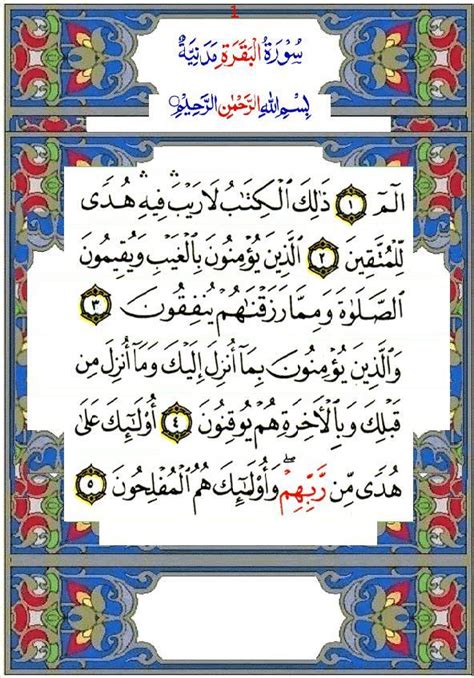 1
سُورَةُ الْبَقَرَةِ مَدَنِيَّةٌ
بِسْمِ اللهِ الرَّحْمٰنِ الرَّحِيْمِ
الٓمٓ ١ ذَٰلِكَ ٱلْكِتَٰبُ لَا رَيْبَ ۛ فِيهِ ۛ هُدًى
لِّلْمُتَّقِينَ ٢ ٱلَّذِينَ يُؤْمِنُونَ بِٱلْغَيْبِ وَيُقِيمُونَ
ٱلصَّلَوٰةَ وَمِمَّا رَزَقْنَٰهُمْ يُنفِقُونَ ٣
وَٱلَّذِينَ يُؤْمِنُونَ بِمَآ أُنزِلَ إِلَيْكَ وَمَآ أُنزِلَ مِن
قَبْلِكَ وَبِٱلْأَخِرَةِ هُمْ يُوقِنُونَ ٤ أُوْلَٰٓئِكَ عَلَىٰ
هُدًى مِّن رَّبِّهِمْ ۖ وَأُوْلَٰٓئِكَ هُمُ ٱلْمُفْلِحُونَ ٥